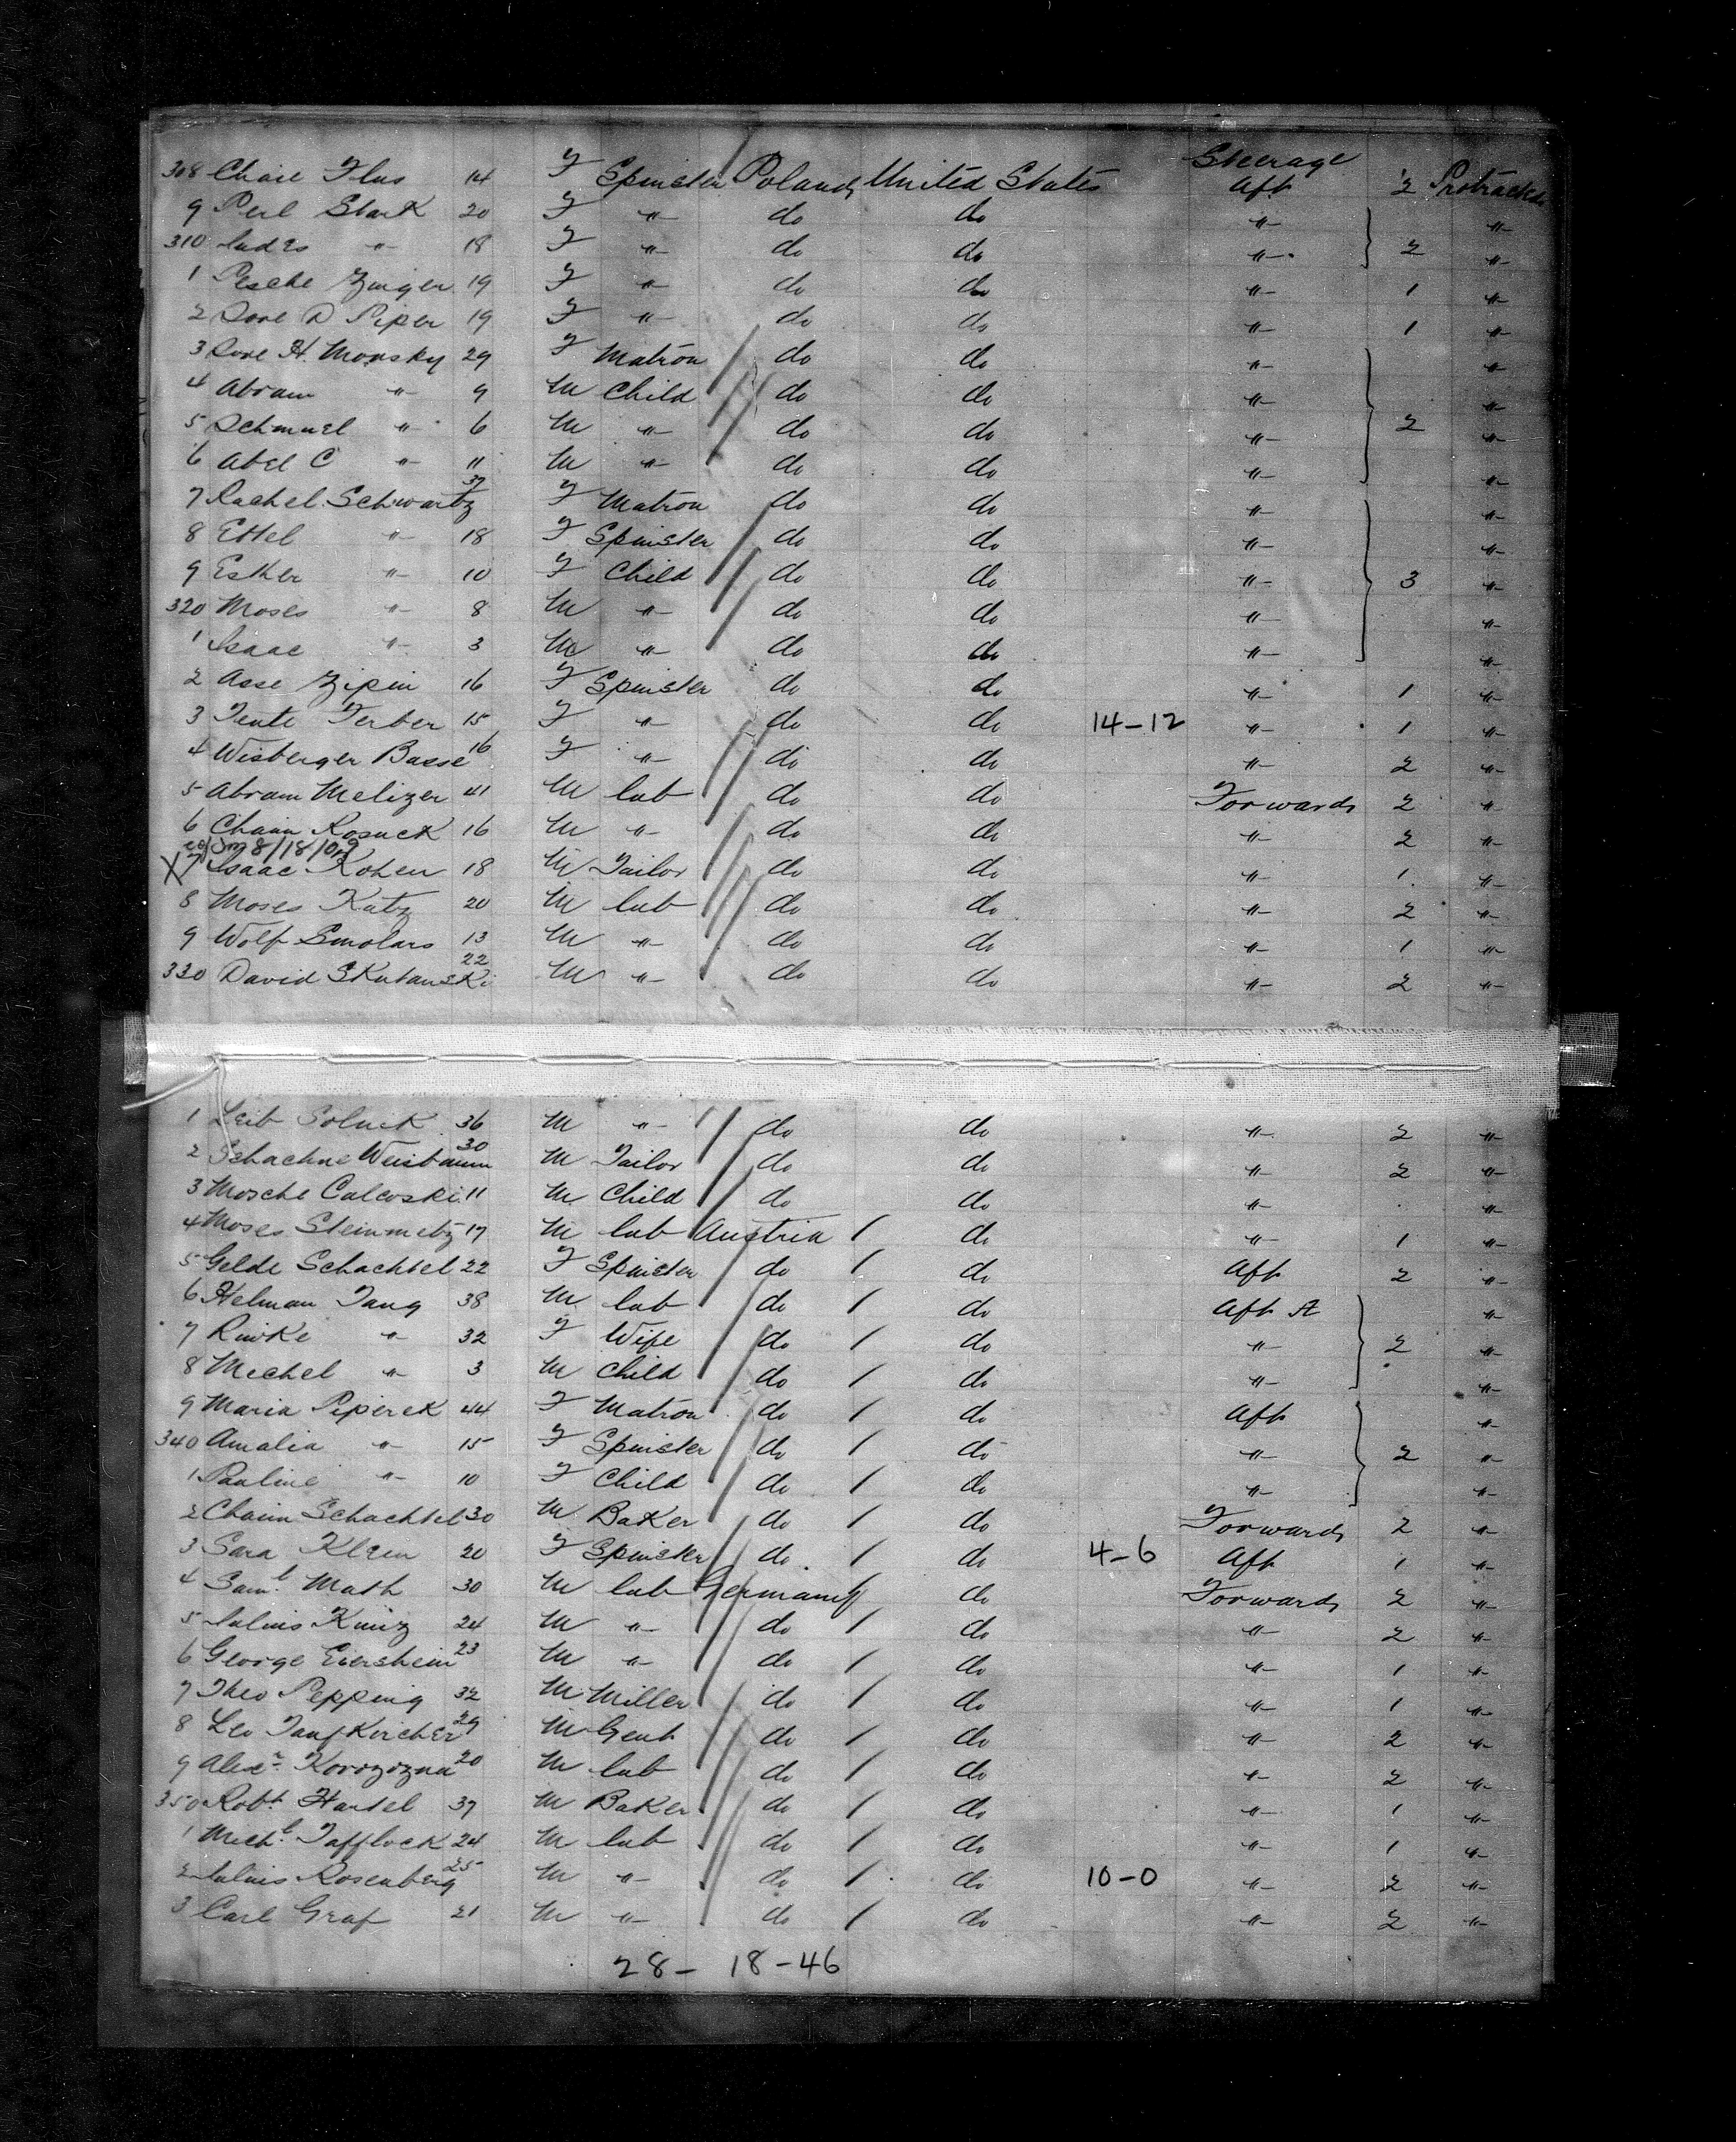 Steerage
308 Chaie Flus 14 F Spinster Poland United States Aft 2 Protracted
9 Perl Stark 20 F " do do " "
310 Judes " 18 F " do do " 2 "
1 Pesche Zinger 19 F " do do " 1 "
2 Sore D Piper 19 F " do do " 1 "
3 Sore H. Monsky 29 F Matron do do " "
4 Abram " 9 M Child do do " "
5 Schmuel " 6 M " do do " 2 "
6 Abel C " 11 M " do do " "
7 Rachel Schwartz 37 F Matron do do " "
8 Ettel " 18 F Spinster do do " "
9 Esther " 10 F Child do do " 3 "
320 Moses " 8 M " do do " "
1 Isaac " 3 M " do do " "
2 Asse Zipin 16 F Spinster do do " 1 "
3 Tente Ferber 15 F " do do 14-12 " 1 "
4 Wisberger Basse 16 F " do do " 2 "
5 Abram Melizer 41 M lab do do Forwards 2 "
6 Chaim Rosuck 16 M " do do " 2 "
8/18/09
X 7 Isaac Kohen 18 M Tailor do do " 1 "
8 Moses Katz 20 M lab do do " 2 "
9 Wolf Smolars 13 M " do do " 1 "
330 David Skutanski 22 M " do do " 2 "
1 Leib Solnik 36 M " do do " 2 "
2 Schachne Weisbaum 30 M Tailor do do " 2 "
3 Mosche Calcoski 11 M Child do do " "
4 Moses Steinmetz 17 M lab Austria do " 1 "
5 Gelde Schachtel 22 F Spinster do do Aft 2 "
6 Helman Tang 38 M lab do do Aft A "
7 Riwke " 32 F Wife do do " 2 "
8 Mechel " 3 M Child do do " "
9 Maria Piperek 44 F Matron do do Aft "
340 Amalia " 15 F Spinster do do " 2 "
1 Pauline " 10 F Child do do " "
2 Chaim Schachtel 30 M Baker do do Forwards 2 "
3 Sara Klein 20 F Spinster do do 4-6 Aft 1 "
4 Saml. Math 30 M lab Germany do Forwards 2 "
5 Julius Kunz 24 M " do do " 2 "
6 George Eiershein 23 M " do do " 1 "
7 Theo Pepping 32 M Miller do do " 1 "
8 Leo Taufkircher 29 M Gent do do " 2 "
9 Alexr. 20 M lab do do " 2 "
350 Robt. Hartel 37 M Baker do do " 1 "
1 Michl. Tafflock 24 M lab do do " 1 "
2 Julius Rosenberg 25 M " do do 10-0 " 2 "
3 Carl Graf 21 M " do do " 2 "
28- 18-46